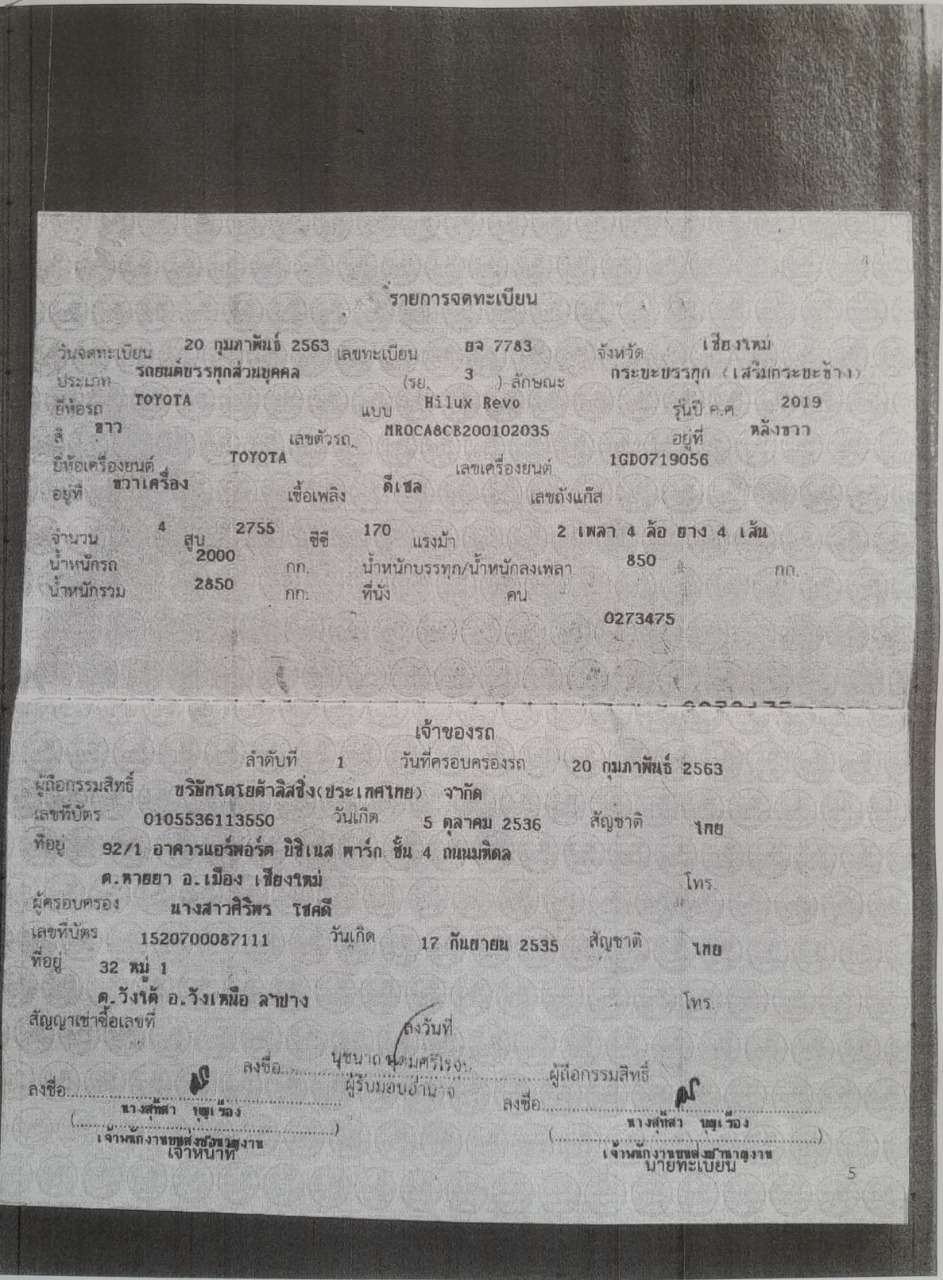 รายการจดทะเบียน
วันจดทะเบียน 20 กุมภาพันธ์ 2563 เลขทะเบียน ยจ 7783 จังหวัด เชียงใหม่
ประเภท รถยนต์บรรทุกส่วนบุคคล (รย. 3 ) ลักษณะ กระบะบรรทุก (เสริมกระบะข้าง)
ยี่ห้อรถ TOYOTA แบบ Hilux Revo รุ่นปี ค.ศ. 2019
สี ขาว เลขตัวรถ MR0CA8CB200102035 อยู่ที่ หลังขวา
ยี่ห้อเครื่องยนต์ TOYOTA เลขเครื่องยนต์ 1GD0719056
อยู่ที่ ขวาเครื่อง เชื้อเพลิง ดีเซล เลขถังแก๊ส
จำนวน 4 สูบ 2755 ซีซี 170 แรงม้า 2 เพลา 4 ล้อ ยาง 4 เส้น
น้ำหนักรถ 2000 กก. น้ำหนักบรรทุก/น้ำหนักลงเพลา 850 กก.
น้ำหนักรวม 2850 กก. ที่นั่ง คน
0273475
เจ้าของรถ
ลำดับที่ 1 วันที่ครอบครองรถ 20 กุมภาพันธ์ 2563
ผู้ถือกรรมสิทธิ์ บริษัทโตโยต้าลิสซิ่ง(ประเทศไทย) จำกัด
เลขที่บัตร 0105536113550 วันเกิด 5 ตุลาคม 2536 สัญชาติ ไทย
ที่อยู่ 92/1 อาคารแอร์พอร์ต บิซิเนส พาร์ก ชั้น 4 ถนนมหิดล
ต.หายยา อ.เมือง เชียงใหม่ โทร.
ผู้ครอบครอง นางสาวศิริพร โชคดี
เลขที่บัตร 1520700087111 วันเกิด 17 กันยายน 2535 สัญชาติ ไทย
ที่อยู่ 32 หมู่ 1
ต.วังใต้ อ.วังเหนือ ลำปาง โทร.
สัญญาเช่าซื้อเลขที่ ลงวันที่
ลงชื่อ นุชนาถ ผู้ถือกรรมสิทธิ์
ผู้รับมอบอำนาจ
ลงชื่อ ลงชื่อ
นางสุทิสา บุญเรือง นางสุทิสา บุญเรือง
เจ้าพนักงานขนส่งชำนาญงาน เจ้าพนักงานขนส่งชำนาญงาน
เจ้าหน้าที่ นายทะเบียน
5